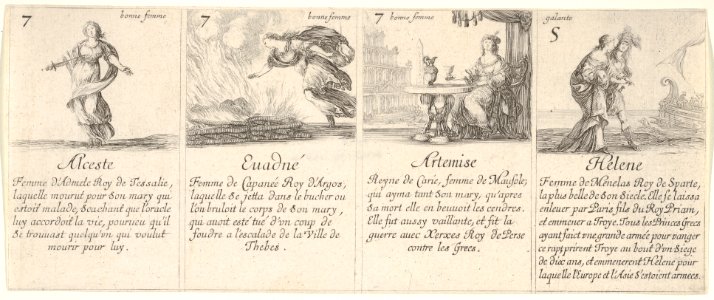 7 bonne femme
Alceste
Femme d'Admete Roy de Tessalie,
laquelle mourut pour Son mary qui
estoit malade, Sçachant que l'oracle
luy accordoit la vie, pourueu qu'il
Se trouuast quelqu'un qui voulut
mourir pour luy.
7 bonne femme
Euadné
Femme de Capanée Roy d'Argos,
laquelle Se jetta dans le bucher ou
l'on bruloit le corps de Son mary,
qui auoit esté tué d'un coup de
foudre a l'escalade de la Ville de
Thebes.
7 bonne femme
Artemise
Reyne de Carie, femme de Mausole,
qui ayma tant Son mary, qu'apres
Sa mort elle en beuuoit les cendres.
Elle fut aussy vaillante, et fit la
guerre auec Xerxes Roy de Perse
contre les Grecs.
galante
S
Hélene
Femme de Ménelas Roy de Sparte,
la plus belle de Son Siecle. Elle Se laissa
enleuer par Paris fils du Roy Priam,
et emmener a Troye. Tous les Princes Grecs
ayant faict vne grande armée pour vanger
ce rapt prirent Troye au bout d'vn Siege
de dix ans, et emmenerent Hélene pour
laquelle l'Europe et l'Asie S'estoient armées.